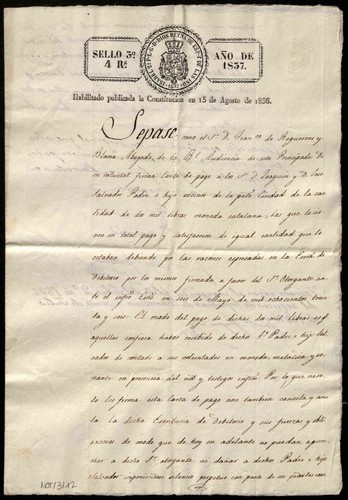 SELLO 3º
4 Rs
AÑO DE
1837.
Habilitado publicada la Constitucion en 15 de Agosto de 1836.
Sepase como el Sr. D. de Requesens y
Abogado de la Rl. Audiencia de este Principado De
su voluntat firma Carta de pago a los Srs. D. Joaquin y D.
Salvador Padre e hijo vecinos de la Ciudad de la can
tidad de dos mil libras moneda catalana; las que
en total pago y satisfaccion de igual cantidad que le
estaban debiendo por las razones espresadas en la Escra. de
Debitorio por los mismos firmada a favor del Sr. Otorgante an
te el infro. Esno. en seis de Mayo de mil ochocientos trein
ta y seis. El modo del pago de dichas dos mil libras es
aquellas confiesa haber recibido de dicho Sr. Padre e hijo
de contado a sus voluntades en moneda metalica y so
nante en presencia del y testigos infros. Por lo que
les firma esta carta de pago sino tambien cancela y anu
la la dicha Escritura de Debitorio y sus fuerzas y obli
gaciones de modo que de hoy en adelante no puedan
a dicho Sr. otorgante ni dañar a dichos Padre e hijo
Salvador silencio perpetuo con pacto de
NOT/3/12